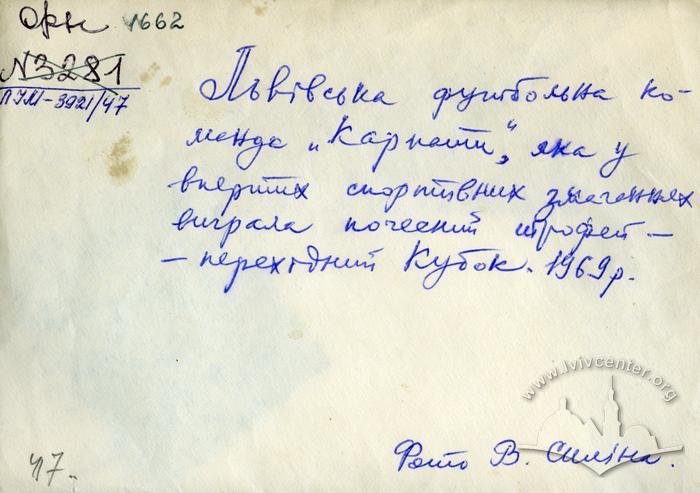 Орк 1662
№3281
ПІМ-3921/47
Львівська футбольна ко-
манда „Карпати", яка у
вперших спортивних змаганнях
виграла почесний трофей —
— перехідний Кубок. 1969 р.
www.lvivcenter.org
Фото В. Силіна.
47.